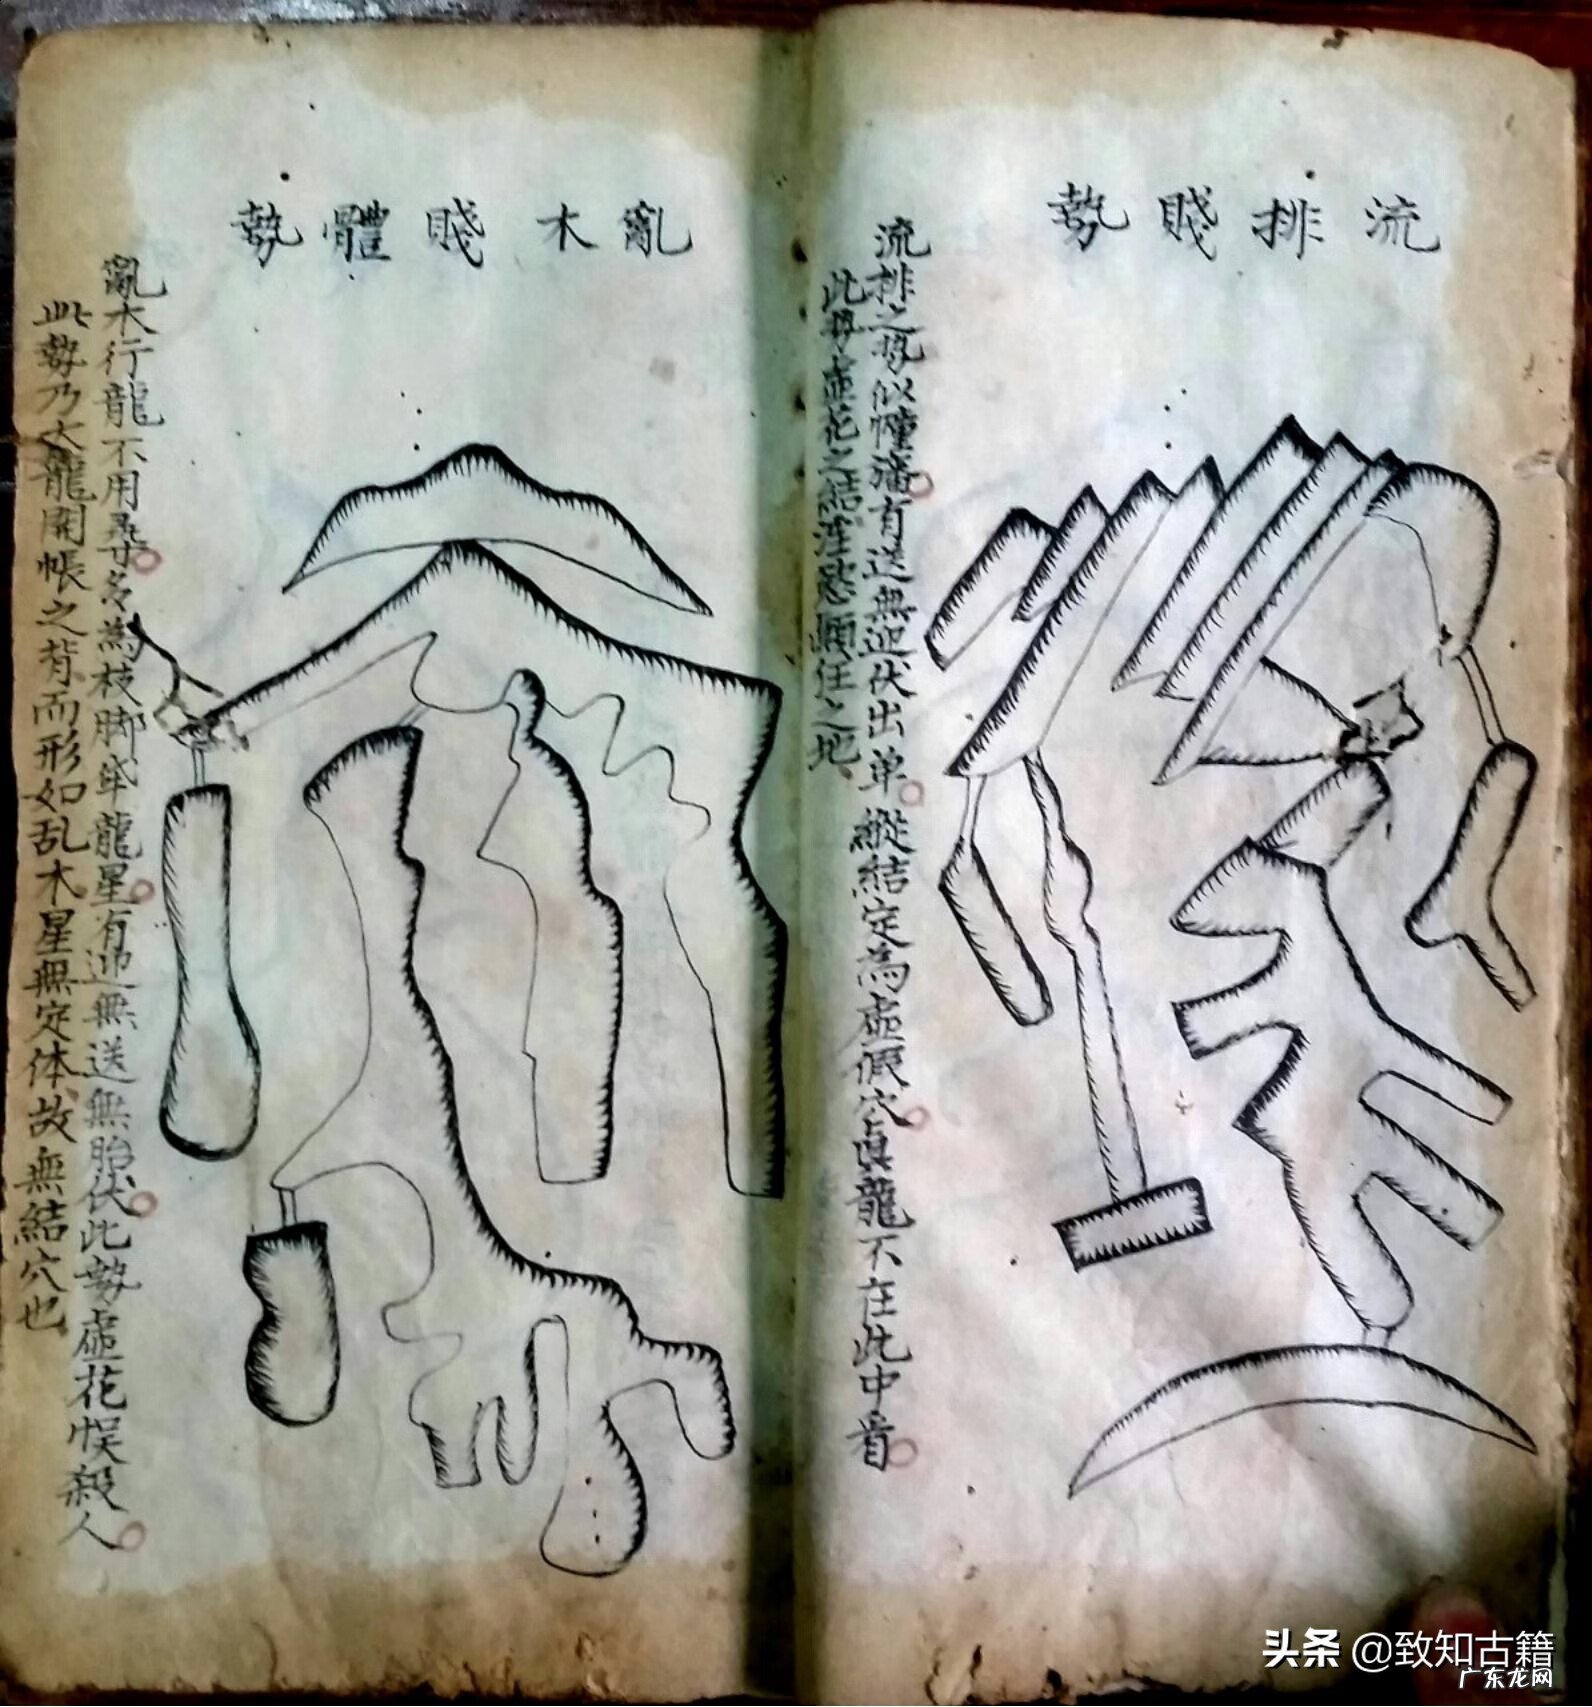 流排賤勢
流排之勢似幢旛有送無迎伏出单縱結定為虛假穴真龍不在此中看
此勢虛花之結淫慾顛狂之地
亂木賤體勢
亂木行龍不用尋多為枝脚年龍星有迎無送無胎伏此勢虛花悮殺人
此勢乃大龍開帳之背而形如乱木星無定体故無結穴也
头条 @致知古籍
广东龙网